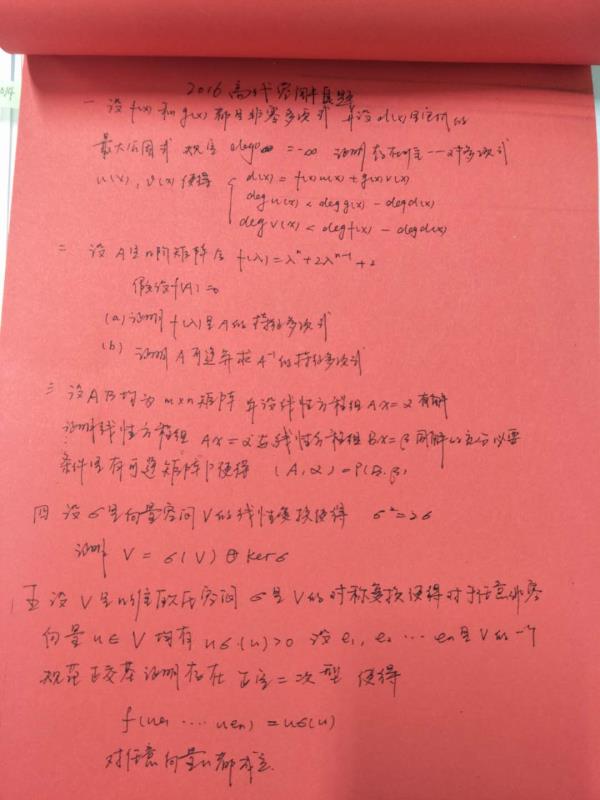 2016 高代 真题
一 设 f(x) 和 g(x) 都是非零多项式 并设 d(x) 是它们的
最大公因式 规定 deg0 = -∞ 证明存在唯一一对多项式
u(x), v(x) 使得 { d(x) = f(x)u(x) + g(x)v(x)
deg u(x) < deg g(x) - deg d(x)
deg v(x) < deg f(x) - deg d(x)
二 设 A 是 n 阶矩阵 令 f(λ) = λⁿ + 2λⁿ⁻¹ + 2
假设 f(A) = 0
(a) 证明 f(λ) 是 A 的特征多项式
(b) 证明 A 可逆并求 A⁻¹ 的特征多项式
三 设 A B 均为 m×n 矩阵 并设线性方程组 AX = α 有解
证明线性方程组 AX = α 与线性方程组 BX = β 同解的充分必要
条件是有可逆矩阵 P 使得 (A, α) = P(B, β)
四 设 σ 是向量空间 V 的线性变换使得 σ² = 2σ
证明 V = σ(V) ⊕ ker σ
五 设 V 是 n 维欧氏空间 σ 是 V 的对称变换使得对于任意非零
向量 u ∈ V 均有 uσ(u) > 0 设 e₁, e₂ … en 是 V 的一个
规范正交基 证明存在 正定二次型 使得
f(ue₁ … uen) = uσ(u)
对任意向量 u 都成立.